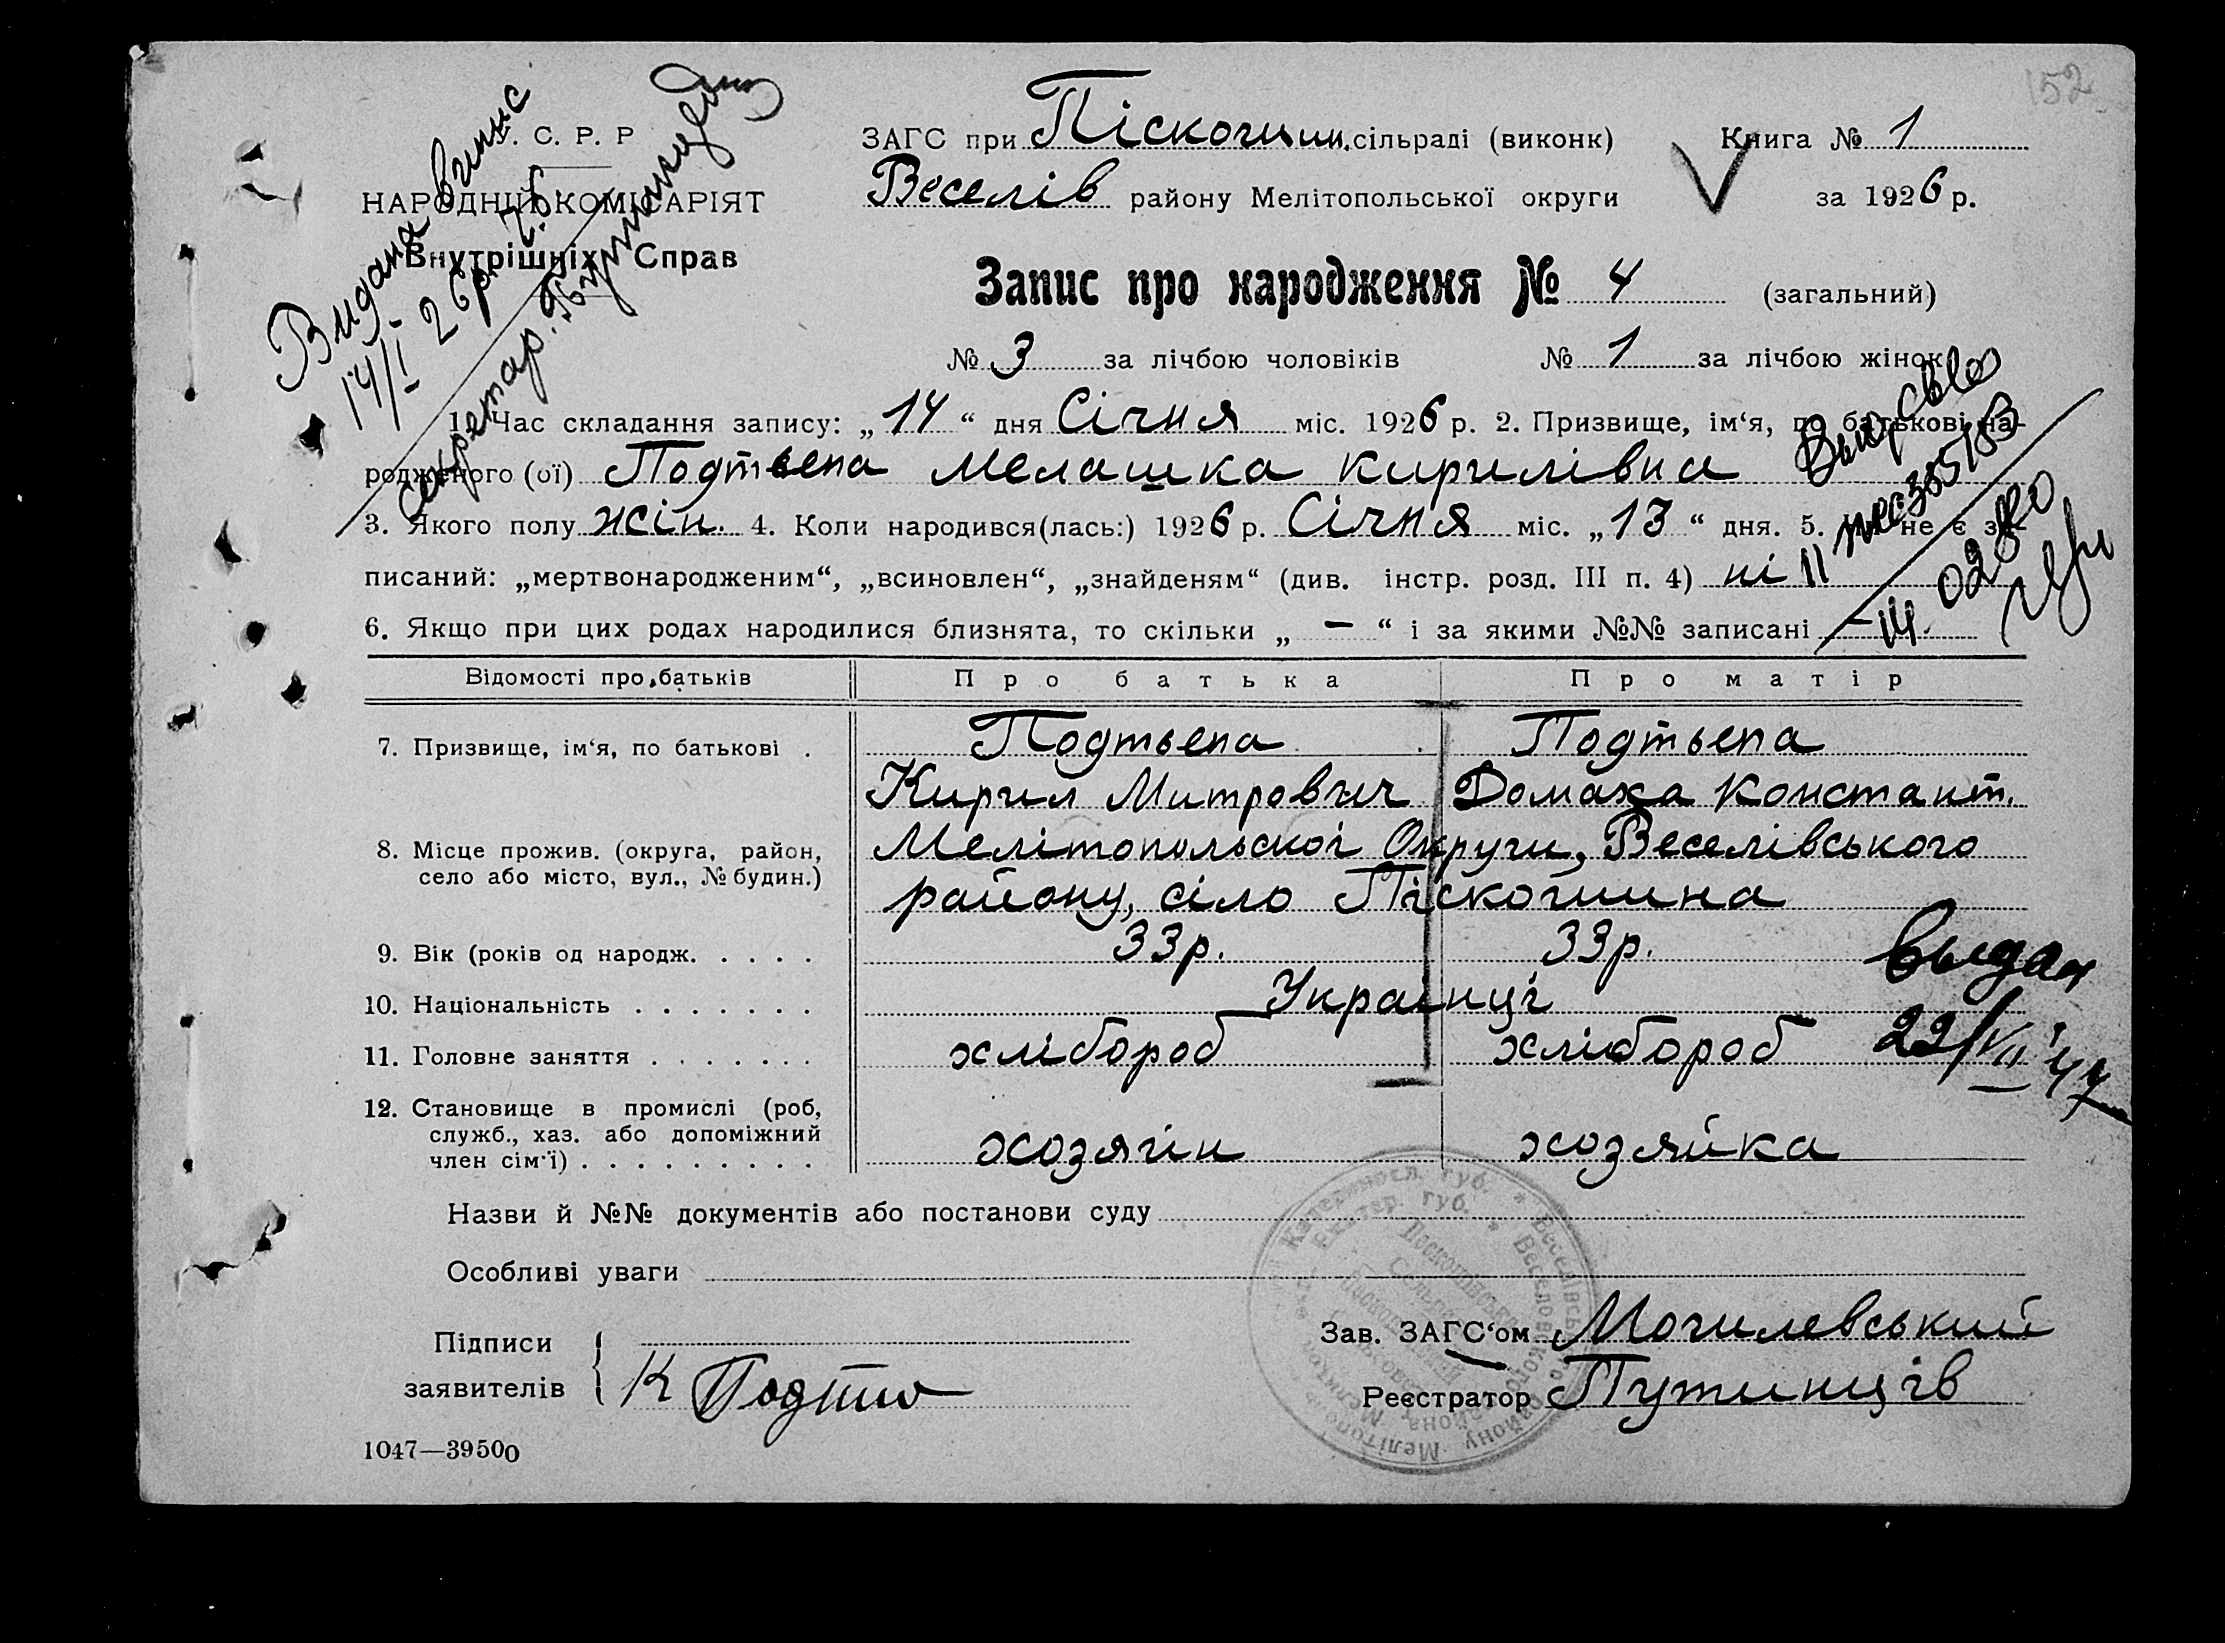 152
У. С. Р. Р
НАРОДНІЙ КОМІСАРІЯТ
Внутрішніх Справ
Видана
14/I 26р.
секретар.
ЗАГС при сільраді (виконк) Книга № 1
Веселів району Мелітопольської округи за 1926 р.
Запис про народження № 4 (загальний)
№ 3 за лічбою чоловіків № 1 за лічбою жінок
1. Час складання запису: „14“ дня Січня міс. 1926 р. 2. Призвище, ім‘я, по батькові на-
родженого (ої) Подтьепа Мелашка Кирилівна
3. Якого полу жін. 4. Коли народився(лась:) 1926 р. Січня міс. „13“ дня. 5. Чи не є за-
писаний: „мертвонародженим“, „всиновлен“, „знайденям“ (див. інстр. розд. III п. 4) ні
6. Якщо при цих родах народилися близнята, то скільки „ — “ і за якими №№ записані —
Відомості про батьків Про батька Про матір
7. Призвище, ім‘я, по батькові . Подтьепа Подтьепа
Кирил Митрович Домаха Констант.
8. Місце прожив. (округа, район, Мелітопольскої Округи, Веселівського
село або місто, вул., № будин.) району, сіло Піскошина
9. Вік (років од народж. . . . . 33р. 33р.
10. Національність . . . . . . . Українці
11. Головне заняття . . . . . . . хлібороб хлібороб
выдан
22/VII 47
12. Становище в промислі (роб,
служб., хаз. або допоміжний
член сім‘ї) . . . . . . . . . хозяїн хозяйка
Назви й №№ документів або постанови суду
Особливі уваги
Підписи
заявителів К
Зав. ЗАГС‘ом Могилевський
Реєстратор Путинців
1047—39500